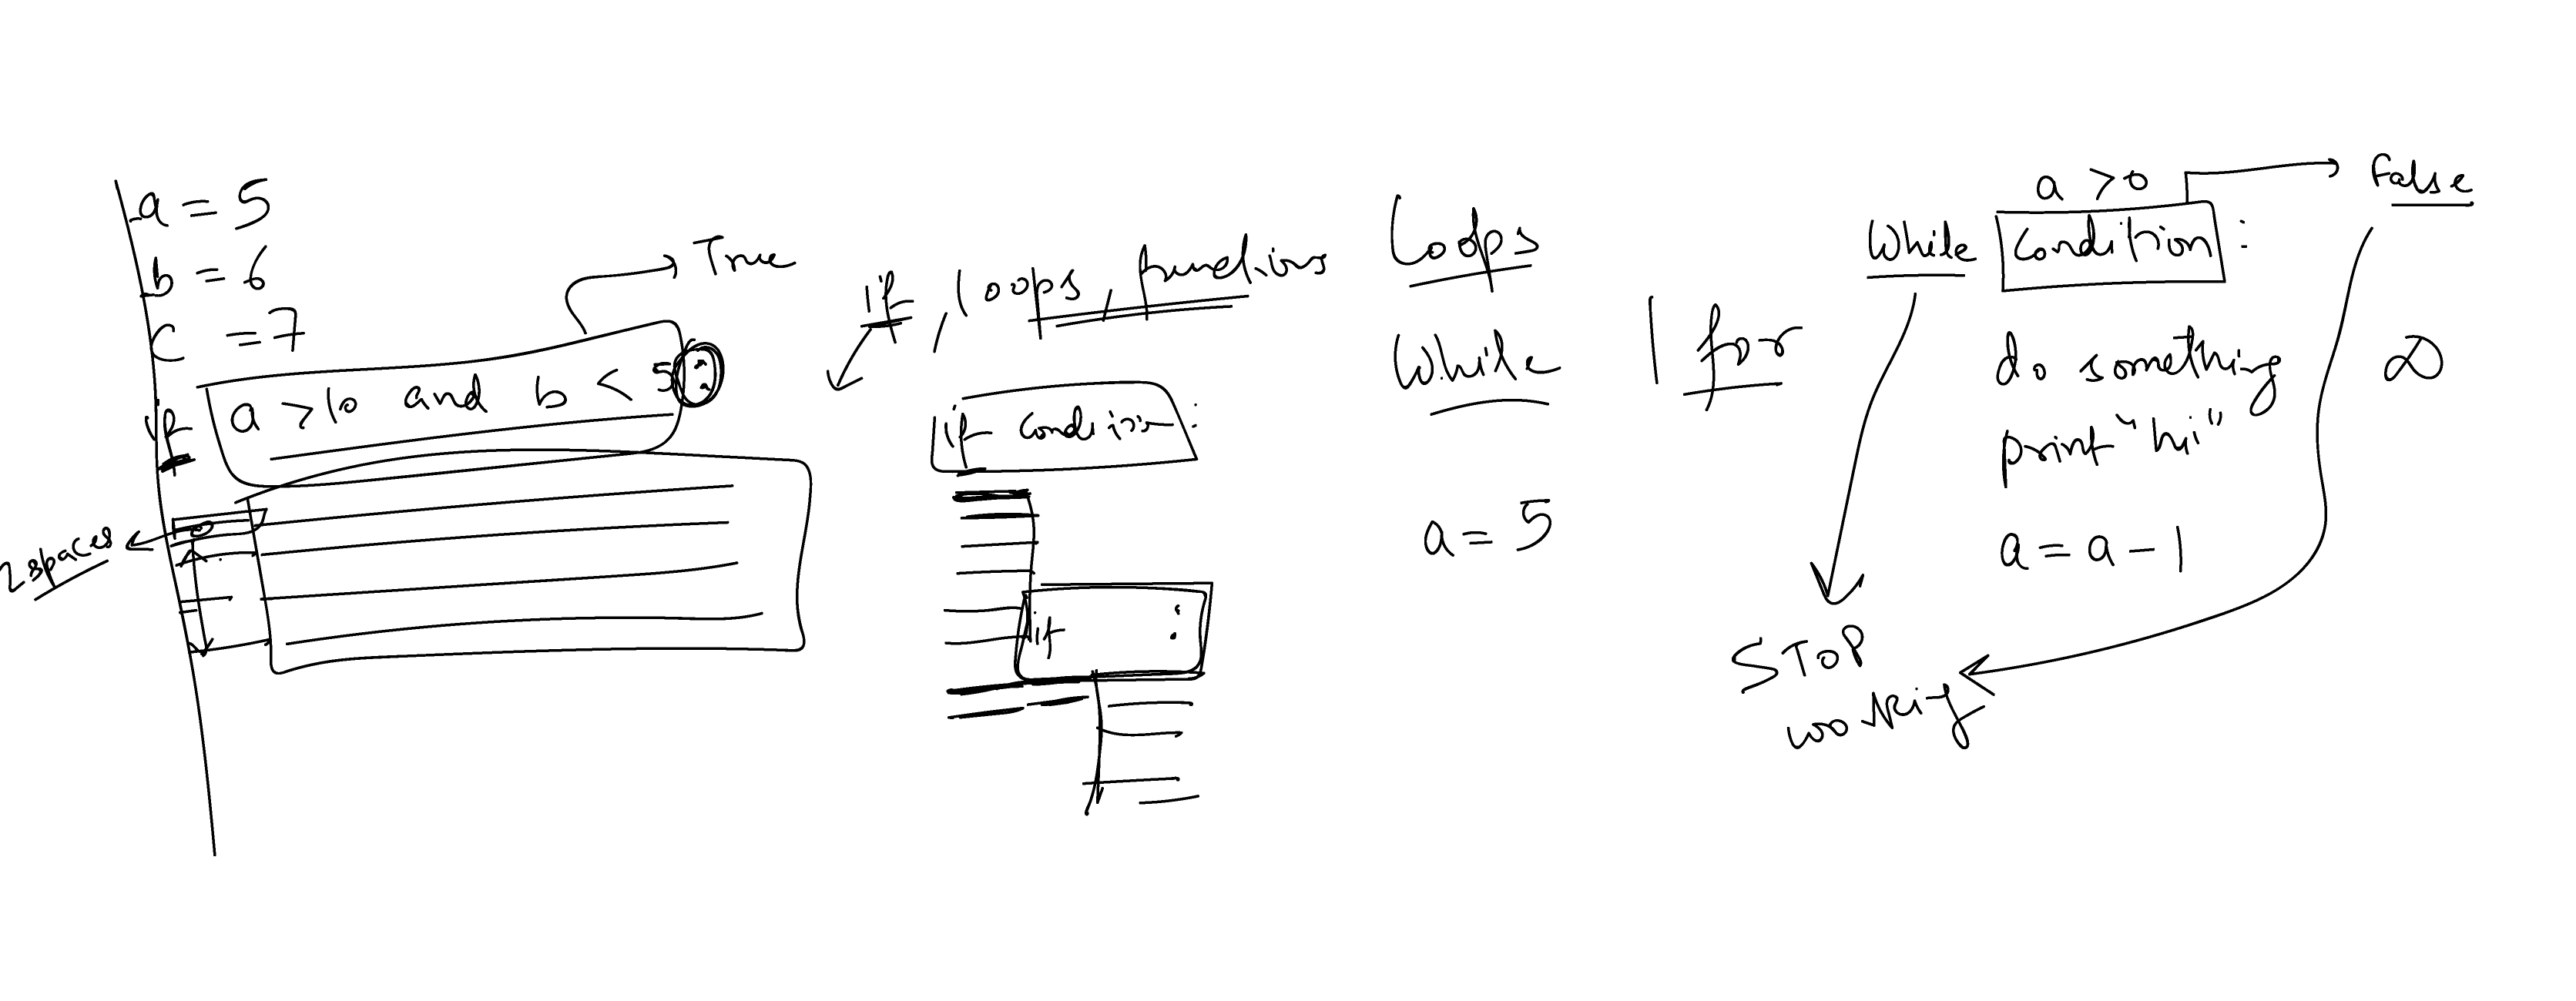 a = 5
b = 6
c = 7
True
if a > 10 and b < 5 :
2 spaces
if, loops, functions
if condition :
if :
Loops
While | for
a = 5
a > 0
False
While condition :
do something
print "hi"
∞
a = a - 1
STOP
working